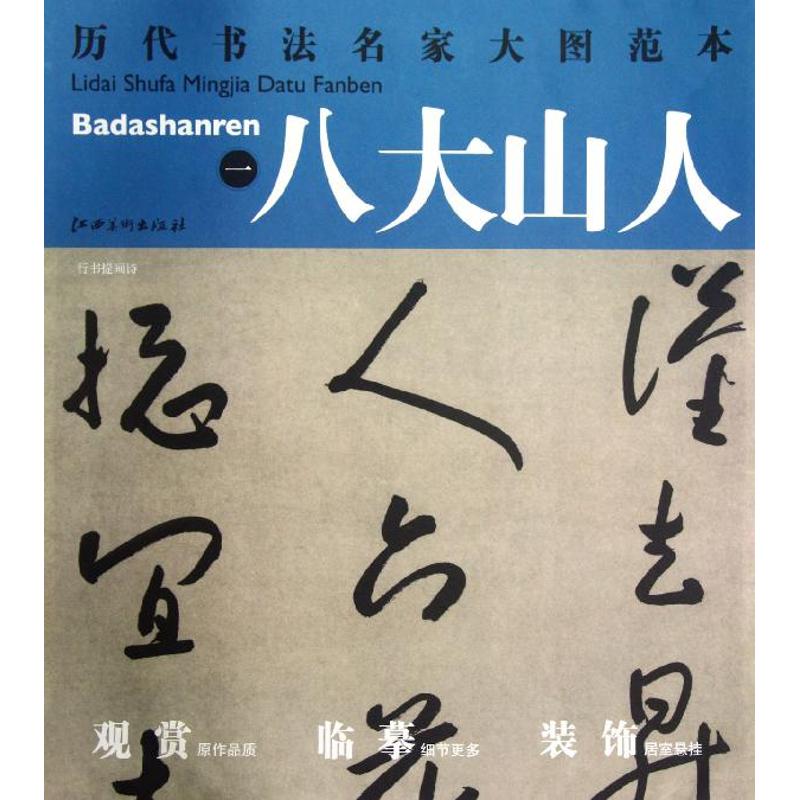 历代书法名家大图范本
Lidai Shufa Mingjia Datu Fanben
Badashanren
一 八大山人
江西美术出版社
行书提画诗
人
宜
去
观赏 原作品质
临摹 细节更多
装饰 居室悬挂